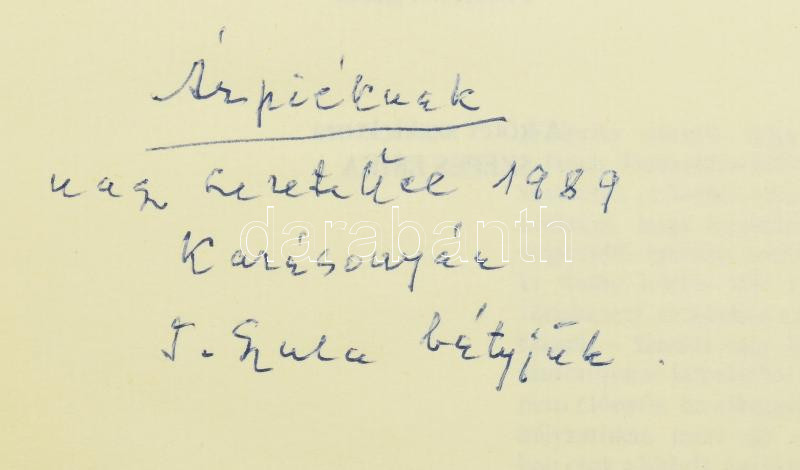 Árpiéknak
nagy szeretettel 1989
Karácsonyán
darabanth
T. Gyula bátyjuk.